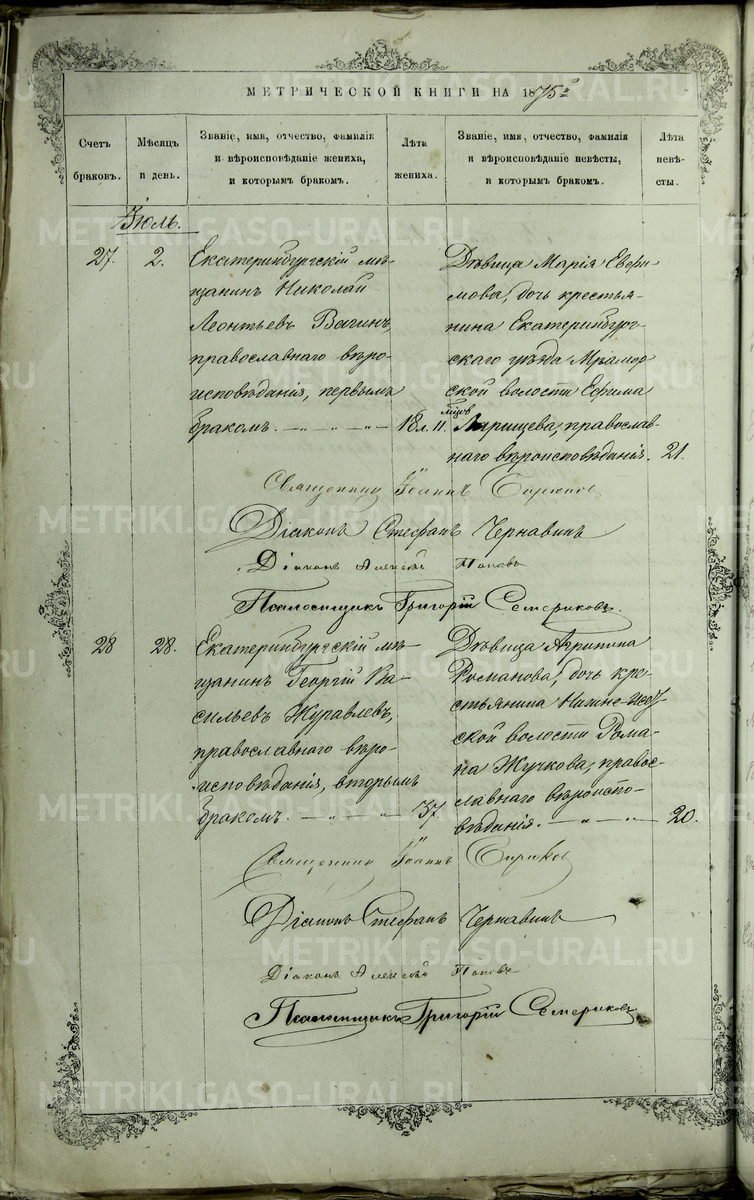 МЕТРИЧЕСКОЙ КНИГИ НА 1875й
Счетъ браковъ.
Мѣсяцъ и день.
Званіе, имя, отчество, фамилія и вѣроисповѣданіе жениха, и которымъ бракомъ.
Лѣта жениха.
Званіе, имя, отчество, фамилія и вѣроисповѣданіе невѣсты, и которымъ бракомъ.
Лѣта невѣсты.
Іюль.
27. 2.
Екатеринбургскій мѣ-
щанинъ Николай
Леонтьевъ Вагинъ,
православнаго вѣро-
исповѣданія, первымъ
бракомъ. — „ — „ — „ — 18 л. 11 мцъ
Дѣвица Марія Ефи-
мова, дочь крестья-
нина Екатеринбург-
скаго уѣзда Мрамор
ской волости Ефима
Ларищева, православ-
наго вѣроисповѣданія. 21.
Священникъ Іоаннъ
Діаконъ Стефанъ Чернавинъ
Діаконъ Алексѣй Поповъ
Псаломщикъ Григорій Семериковъ.
28 28.
Екатеринбургскій мѣ-
щанинъ Георгій Ва-
сильевъ Журавлевъ,
православнаго вѣро-
исповѣданія, вторымъ
бракомъ. — „ — „ — „ — 37.
Дѣвица Агрипина
Романова, дочь кре-
стьянина Нижне-Исет
ской волости Рома-
на Жучкова, правос-
лавнаго вѣроиспо-
вѣданія. — „ — „ — 20.
Священникъ Іоаннъ
Діаконъ Стефанъ Чернавинъ
Діаконъ Алексѣй Поповъ
Псаломщикъ Григорій Семериковъ
METRIKI.GASO-URAL.RU